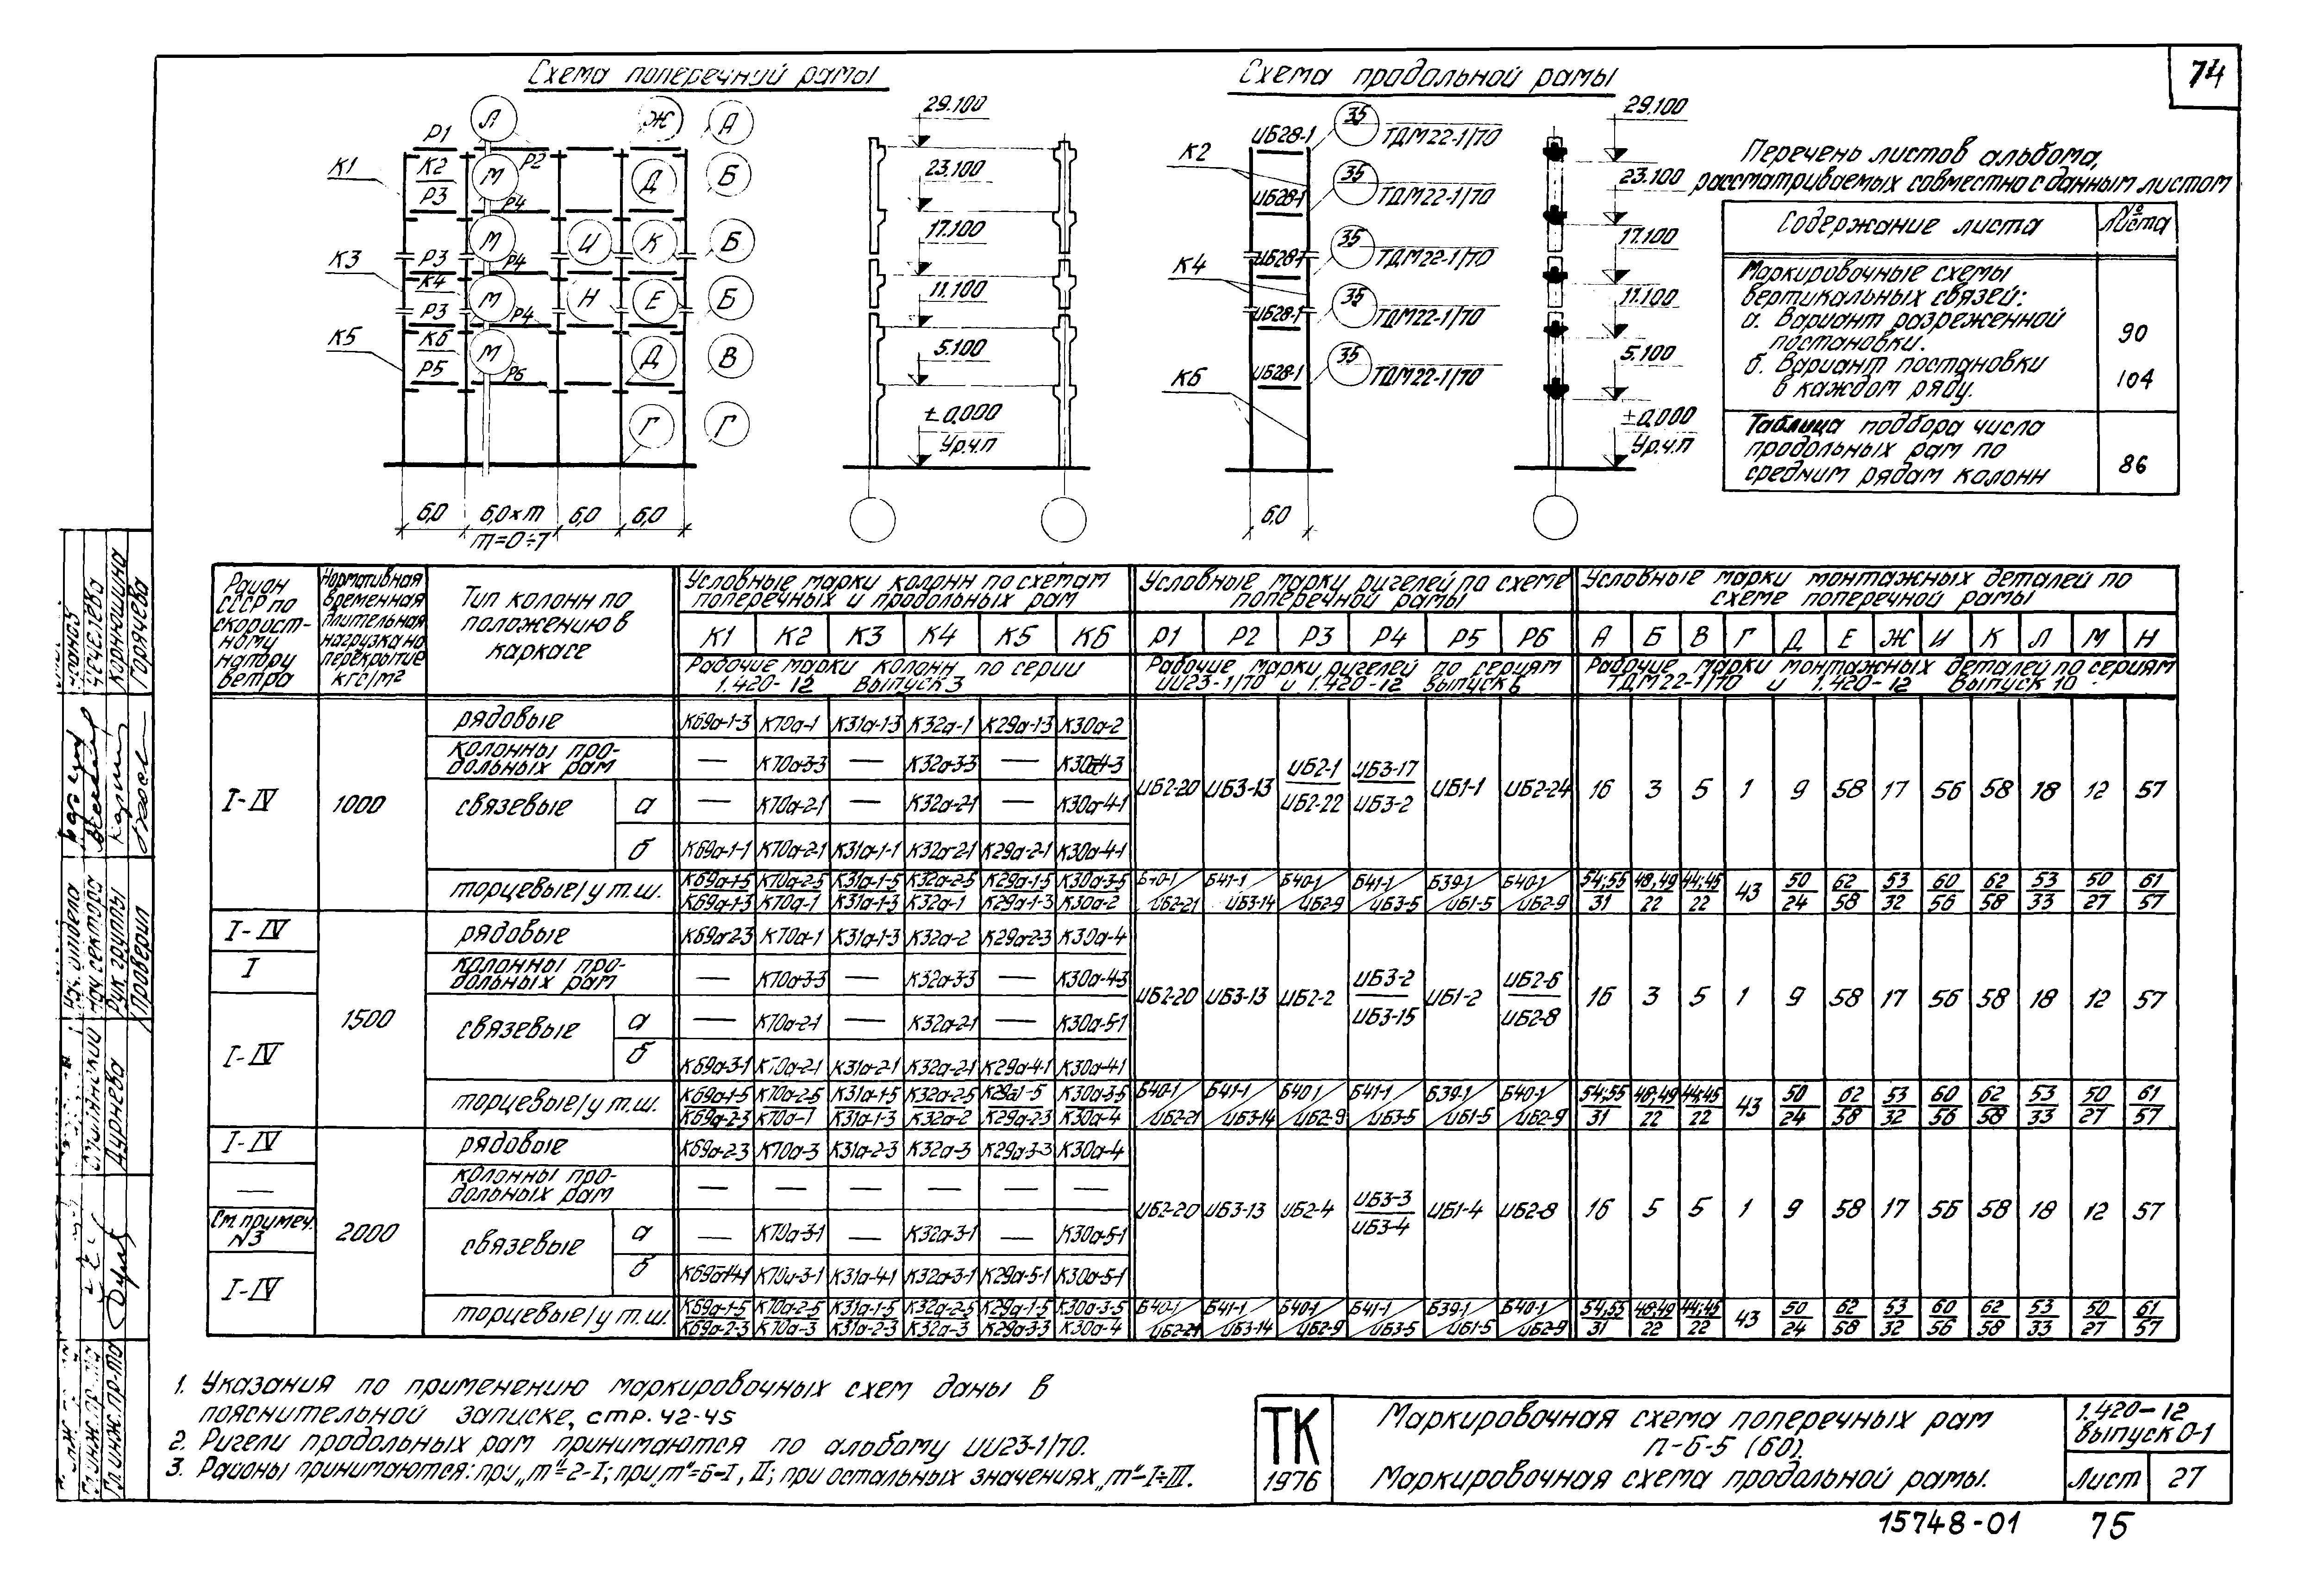 74
Схема поперечной рамы
Схема продольной рамы
Р1 Л Ж А
К1 К2 М Р2 Д Б
Р3 Р4
М И К Б
К3 Р3 Р4
К4 М Н Е Б
Р3 Р4
К5 К6 М Д В
Р5 Р6
Г Г
6,0 6,0×m 6,0 6,0
m=0÷7
29.100
23.100
17.100
11.100
5.100
±0,000
Ур.ч.п
ИБ28-1 35 ТДМ22-1/70
К2
ИБ28-1 35 ТДМ22-1/70
ИБ28-1 35 ТДМ22-1/70
К4
ИБ28-1 35 ТДМ22-1/70
К6 ИБ28-1 35 ТДМ22-1/70
6,0
29.100
23.100
17.100
11.100
5.100
±0,000
Ур.ч.п
Перечень листов альбома,
рассматриваемых совместно с данным листом
Содержание листа № листа
Маркировочные схемы
вертикальных связей:
а. Вариант разреженной
постановки. 90
б. Вариант постановки
в каждом ряду. 104
Таблица подбора числа
продольных рам по
средним рядам колонн 86
Район СССР по скорост-ному напору ветра
Нормативная временная длительная нагрузка на перекрытие кгс/м²
Тип колонн по положению в каркасе
Условные марки колонн по схемам поперечных и продольных рам
Условные марки ригелей по схеме поперечной рамы
Условные марки монтажных деталей по схеме поперечной рамы
К1 К2 К3 К4 К5 К6 Р1 Р2 Р3 Р4 Р5 Р6 А Б В Г Д Е Ж И К Л М Н
Рабочие марки колонн по серии 1.420-12 Выпуск 3
Рабочие марки ригелей по сериям ИИ23-1/70 и 1.420-12 Выпуск 6
Рабочие марки монтажных деталей по сериям ТДМ22-1/70 и 1.420-12 Выпуск 10
I-IV 1000
рядовые К69а-1-3 К70а-1 К31а-1-3 К32а-1 К29а-1-3 К30а-2
колонны про-дольных рам — К70а-3-3 — К32а-3-3 — К30а-4-3
связевые а — К70а-2-1 — К32а-2-1 — К30а-4-1
б К69а-1-1 К70а-2-1 К31а-1-1 К32а-2-1 К29а-2-1 К30а-4-1
ИБ2-20 ИБ3-13 ИБ2-1/ИБ2-22 ИБ3-17/ИБ3-2 ИБ1-1 ИБ2-24 16 3 5 1 9 58 17 56 58 18 12 57
торцевые/у т.ш. К69а-1-5 К70а-2-5 К31а-1-5 К32а-2-5 К29а-1-5 К30а-3-5 Б40-1 Б41-1 Б40-1 Б41-1 Б39-1 Б40-1 54;55 48,49 44;45 43 50 62 53 60 62 53 50 61
К69а-1-3 К70а-1 К31а-1-3 К32а-1 К29а-1-3 К30а-2 ИБ2-21 ИБ3-14 ИБ2-9 ИБ3-5 ИБ1-5 ИБ2-9 31 22 22 24 58 32 56 58 33 27 57
I-IV 1500
рядовые К69а-2-3 К70а-1 К31а-1-3 К32а-2 К29а-2-3 К30а-4
I колонны про-дольных рам — К70а-3-3 — К32а-3-3 — К30а-4-3
I-IV связевые а — К70а-2-1 — К32а-2-1 — К30а-5-1
б К69а-3-1 К70а-2-1 К31а-2-1 К32а-2-1 К29а-4-1 К30а-4-1
ИБ2-20 ИБ3-13 ИБ2-2 ИБ3-2/ИБ3-15 ИБ1-2 ИБ2-6/ИБ2-8 16 3 5 1 9 58 17 56 58 18 12 57
торцевые/у т.ш. К69а-1-5 К70а-2-5 К31а-1-5 К32а-2-5 К29а-1-5 К30а-3-5 Б40-1 Б41-1 Б40-1 Б41-1 Б39-1 Б40-1 54;55 48;49 44;45 43 50 62 53 60 62 53 50 61
К69а-2-3 К70а-1 К31а-1-3 К32а-2 К29а-2-3 К30а-4 ИБ2-21 ИБ3-14 ИБ2-9 ИБ3-5 ИБ1-5 ИБ2-9 31 22 22 24 58 32 56 58 33 27 57
I-IV 2000
рядовые К69а-2-3 К70а-3 К31а-2-3 К32а-3 К29а-3-3 К30а-4
— колонны про-дольных рам — — — — — —
См. примеч. N3 связевые а — К70а-3-1 — К32а-3-1 — К30а-5-1
I-IV б К69а-4-1 К70а-3-1 К31а-4-1 К32а-3-1 К29а-5-1 К30а-5-1
ИБ2-20 ИБ3-13 ИБ2-4 ИБ3-3/ИБ3-4 ИБ1-4 ИБ2-8 16 5 5 1 9 58 17 56 58 18 12 57
торцевые/у т.ш. К69а-1-5 К70а-2-5 К31а-1-5 К32а-2-5 К29а-1-5 К30а-3-5 Б40-1 Б41-1 Б40-1 Б41-1 Б39-1 Б40-1 54;55 48;49 44;45 43 50 62 53 60 62 53 50 61
К69а-2-3 К70а-3 К31а-2-3 К32а-3 К29а-3-3 К30а-4 ИБ2-21 ИБ3-14 ИБ2-9 ИБ3-5 ИБ1-5 ИБ2-9 31 22 22 24 58 32 56 58 33 27 57
1. Указания по применению маркировочных схем даны в
пояснительной записке, стр. 42-45
2. Ригели продольных рам принимаются по альбому ИИ23-1/70.
3. Районы принимаются: при „m"=2-I; при „m"=6-I, II; при остальных значениях „m"-I÷III.
ТК
1976
Маркировочная схема поперечных рам
п-6-5 (60).
Маркировочная схема продольной рамы.
1.420-12
выпуск 0-1
Лист 27
15748-01 75
Нач. отдела
Нач. сектора Чечелева
Рук. группы Корнюшина
Проверил Горячева
Дурнева
Гл. инж. пр-та